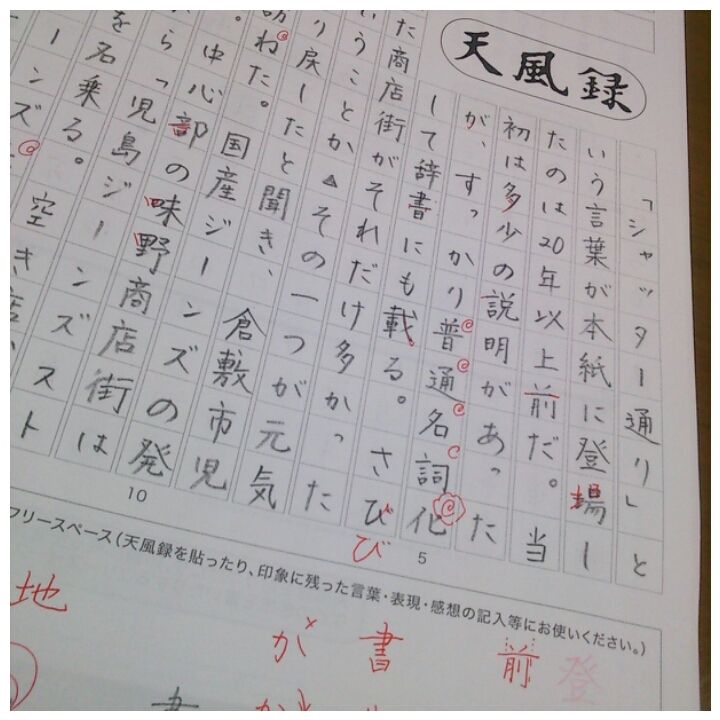 天風録
「シャッター通り」と
いう言葉が本紙に登場し
たのは20年以上前だ。当
初は多少の説明があった
が、すっかり普通名詞化
して辞書にも載る。さび
た商店街がそれだけ多かった
うことか▲その一つが元気
り戻したと聞き、倉敷市児
ねた。国産ジーンズの発
。中心部の味野商店街は
ら「児島ジーンズスト
を名乗る。空き店、
ーンズ
5
10
び
フリースペース(天風録を貼ったり、印象に残った言葉・表現・感想の記入等にお使いください。)
登
前
書
が
地